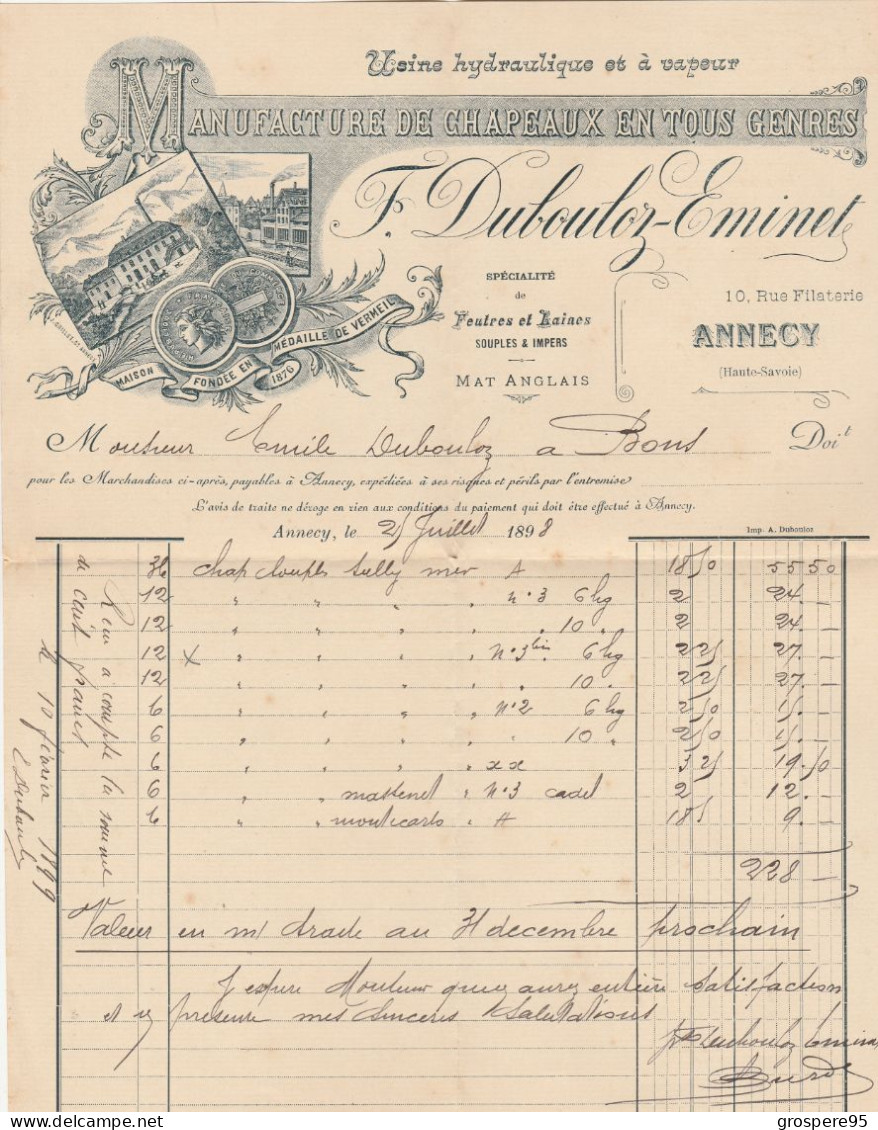 Usine hydraulique et à vapeur
MANUFACTURE DE CHAPEAUX EN TOUS GENRES
F. Dubouloz-Eminet
SPÉCIALITÉ
de
Feutres et Laines
SOUPLES & IMPERS
MAT ANGLAIS
10, Rue Filaterie
ANNECY
(Haute-Savoie)
MAISON FONDÉE EN 1876
MÉDAILLE DE VERMEIL
Monsieur Emile Dubouloz a Bons Doit
pour les Marchandises ci-après, payables à Annecy, expédiées à ses risques et périls par l'entremise
L'avis de traite ne déroge en rien aux conditions du paiement qui doit être effectué à Annecy.
Annecy, le 25 Juillet 1898
Imp. A. Dubouloz
36 chap souples sully A 1850 55 50
12 " " " " n°3 6 kg 2 24. —
12 " " " " 10 " 2 24. —
12 x " " " " N°3bis 6 kg 225 27. —
12 " " " " 10 " 225 27. —
6 " " " " N°2 6 kg 250 15. —
6 " " " " 10 " 250 15. —
6 " " " " xx 325 19.50
6 " " massenet " N°3 cadet 2 12. —
6 " " montecarlo " A 185 9. —
228 —
Valeur en m/ traite au 31 decembre prochain
J'espere Monsieur que aurez entière satisfaction
et vs presente mes sinceres Salutations
Dubouloz Eminet
Recu a compte la somme
de cent francs
le 10 février 1899
E Dubouloz
grospere95